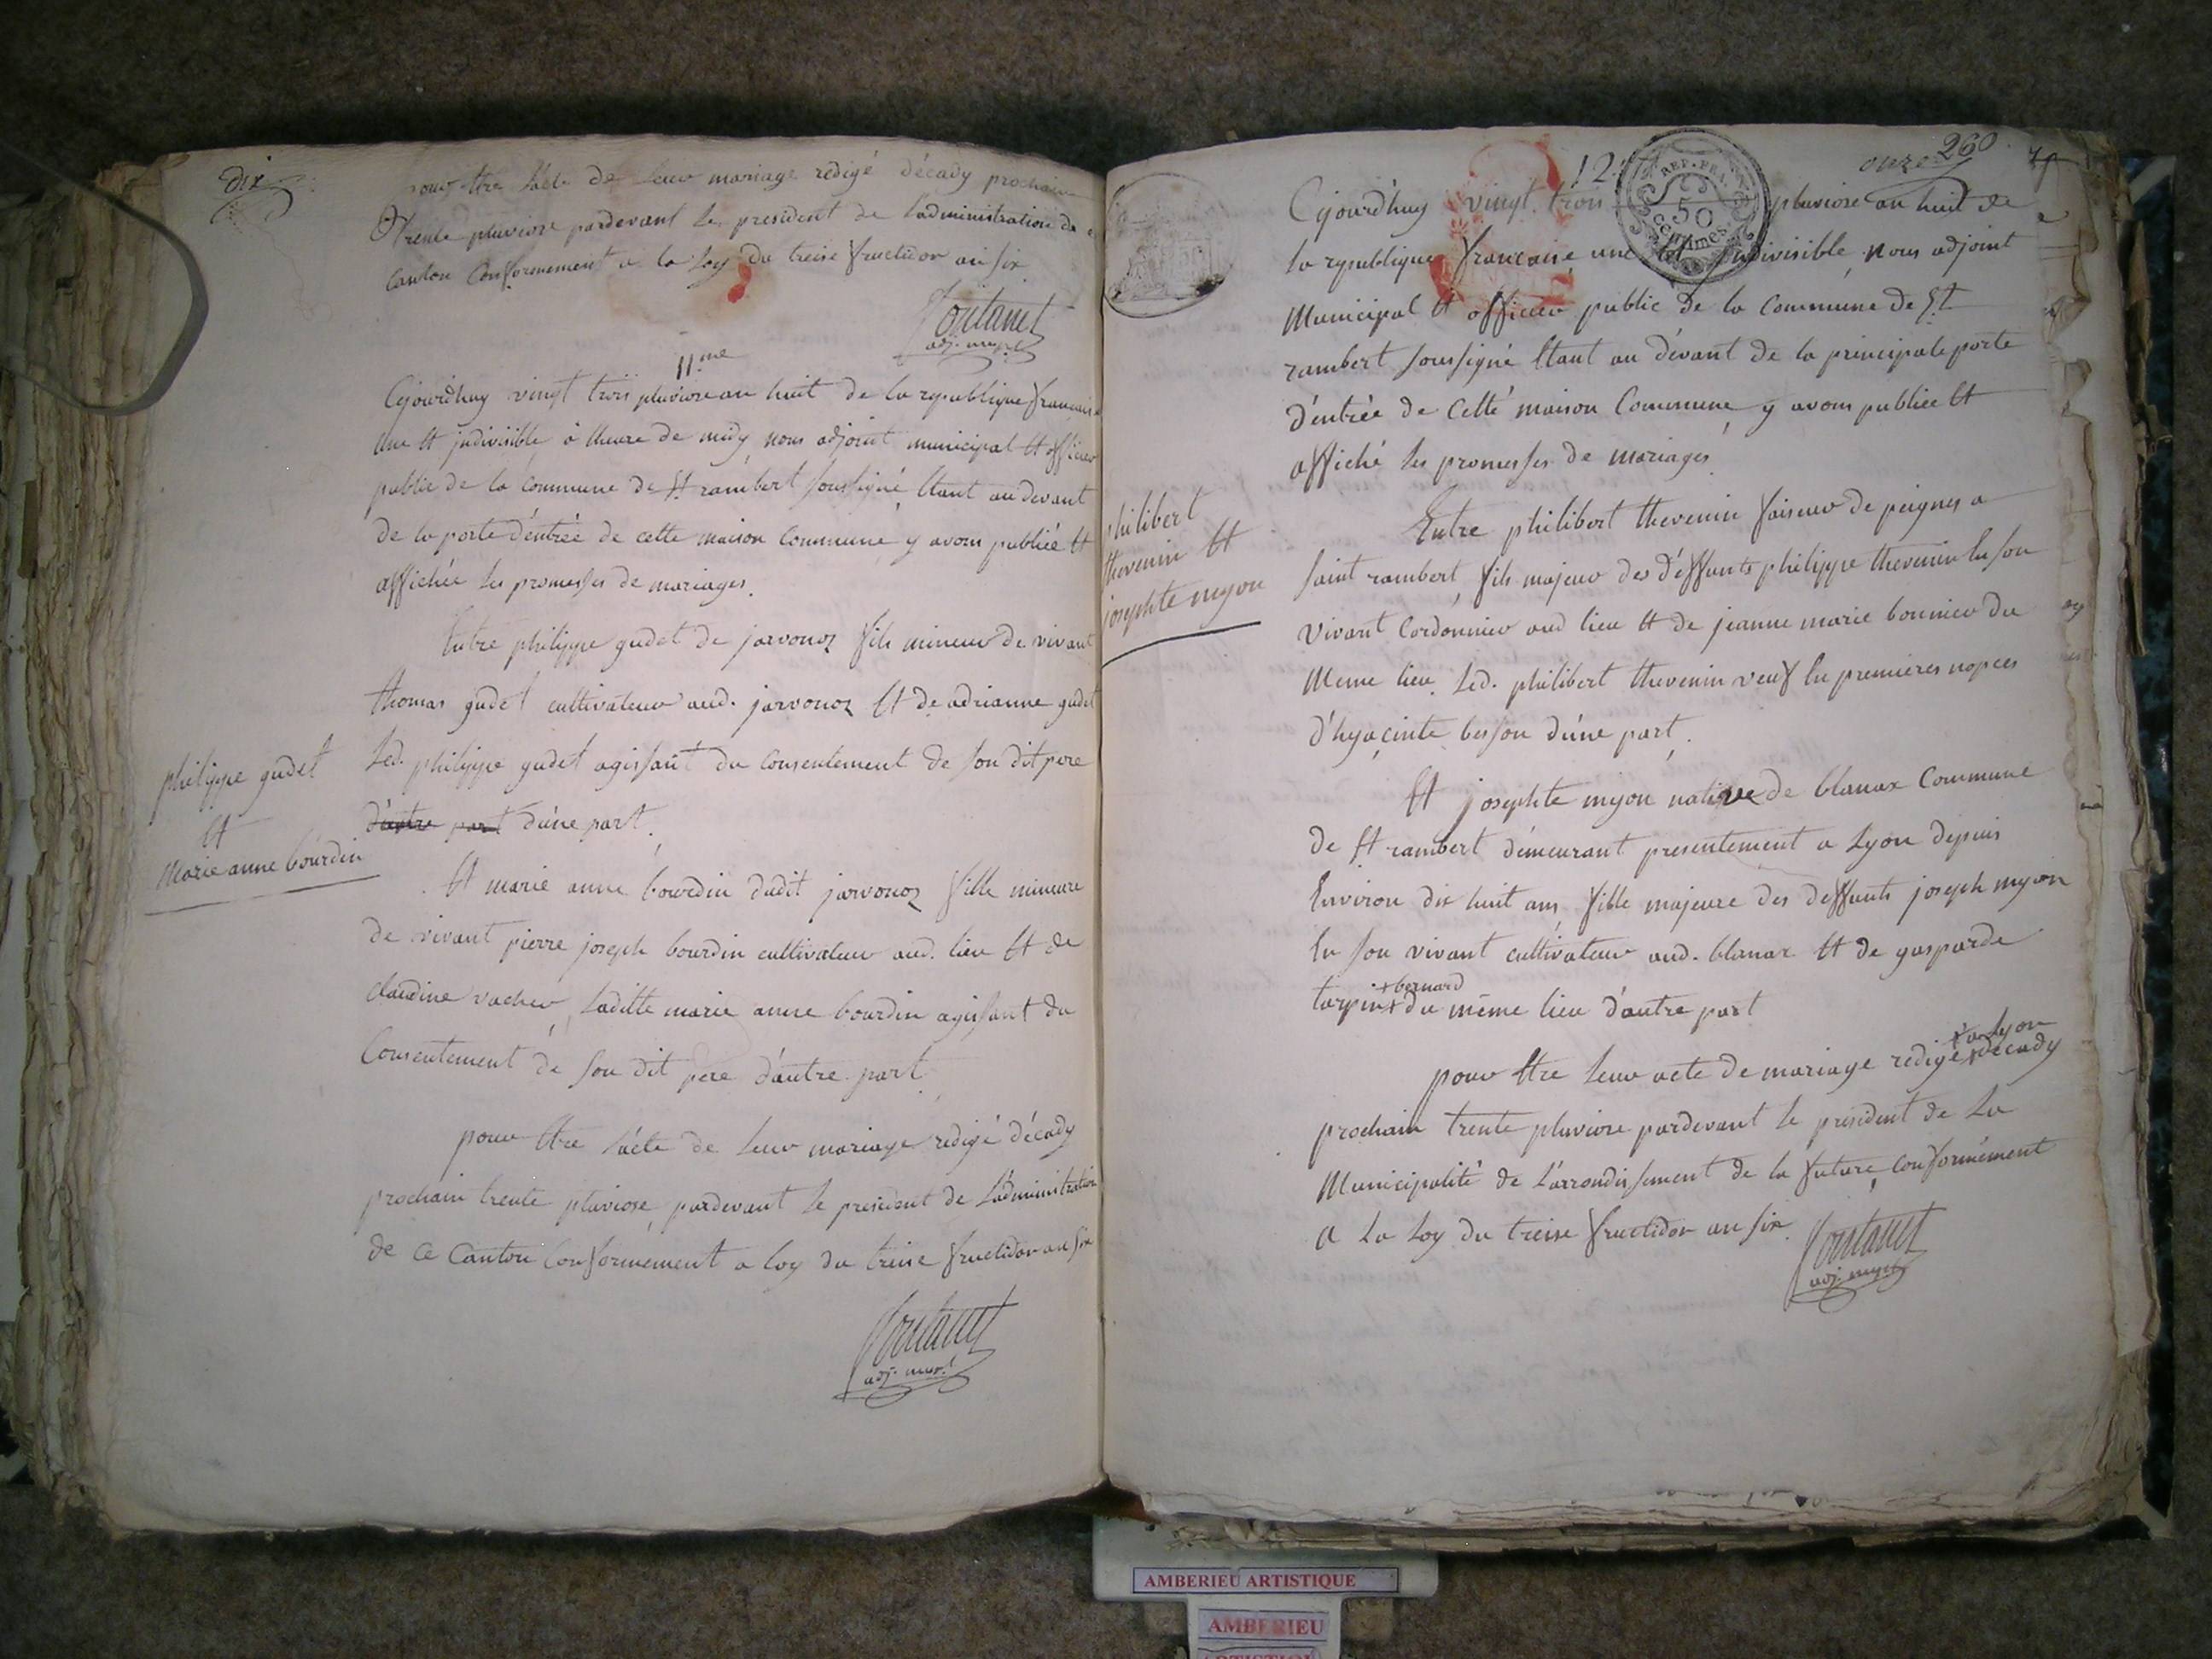 dix
pour être l'acte de leur mariage redigé décady prochain
trente pluviose pardevant le president de l'administration de ce
canton conformement a la Loy du treise fructidor an six
adj. mupl
11.me
Cejourd'huy vingt trois pluviose an huit de la republique francaise
une et indivisible à lheure de midy nous adjoint municipal et officier
public de la commune de St rambert soussigné étant au devant
de la porte d'entrée de cette maison commune y avons publiée et
affichée les promesses de mariages.
Entre philippe gudet de javornoz fils mineur de vivant
thomas gudet cultivateur aud. jarvonoz et de adrianne gudet
Led. philippe gudet agissant du consentement de son dit pere
d'autre part d'une part.
philippe gudet
et
Marie anne bourdin
Et marie anne bourdin dudit jarvonoz fille mineure
de vivant pierre joseph bourdin cultivateur aud. lieu et de
claudine vacher, Laditte marie anne bourdin agissant du
Consentement de son dit pere d'autre part
pour être l'acte de leur mariage redigé décady
prochain trente pluviose, pardevant le president de l'administration
de ce Canton conformement a loy du treise fructidor an six
adj. mupl
12.me
onze
260
REP. FRA.
50
centimes
Cejourd'huy vingt trois pluviose an huit de
la republique francaise une et indivisible, nous adjoint
Municipal et officier public de la commune de St
rambert soussigné étant au dévant de la principale porte
d'entrée de cette maison Commune y avons publiée et
affiché les promesses de mariages
philibert
thevenin et
josephte myon
Entre philibert thevenin faiseur de peignes a
saint rambert, fils majeur des déffunts philippe thevenin en son
vivant Cordonnier aud lieu et de jeanne marie bonnier du
Meme lieu. Led. philibert thevenin veuf en premieres nopces
d'hyacinte besson d'une part.
Et josephte myon native de blanaz Commune
de St rambert demeurant presentement a Lyon depuis
Environ dix huit ans, fille majeure des deffunts joseph myon
En son vivant cultivateur aud. blanaz et de gasparde
+ bernard
tarpin + du même lieu d'autre part
+ a Lyon
pour être leur acte de mariage redigé + décady
prochain trente pluviose pardevant le président de La
Municipalité de L'arrondissement de la future, conformément
a La Loy du treise fructidor an six.
adj. mupl
AMBERIEU ARTISTIQUE
AMBERIEU
ARTISTIQUE